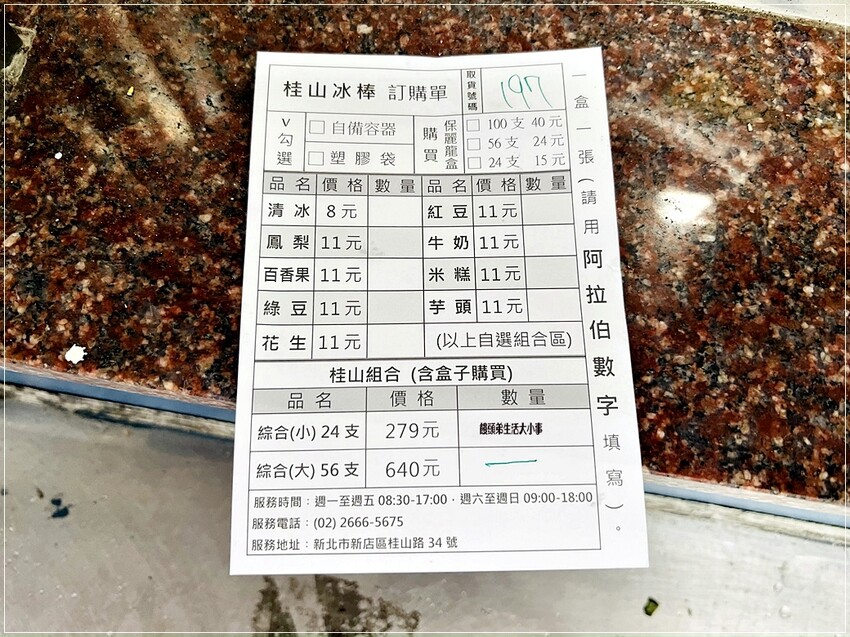 桂山冰棒 訂購單
取貨號碼
197
v勾選
□ 自備容器
□ 塑膠袋
購買
保麗龍盒
□ 100支 40元
□ 56支 24元
□ 24支 15元
品名 價格 數量 品名 價格 數量
清冰 8元 紅豆 11元
鳳梨 11元 牛奶 11元
百香果 11元 米糕 11元
綠豆 11元 芋頭 11元
花生 11元 (以上自選組合區)
桂山組合 (含盒子購買)
品名 價格 數量
綜合(小) 24支 279元
饅頭弟生活大小事
綜合(大) 56支 640元 一
服務時間：週一至週五 08:30-17:00，週六至週日 09:00-18:00
服務電話：(02) 2666-5675
服務地址：新北市新店區桂山路 34 號
一盒一張(請用阿拉伯數字填寫)。